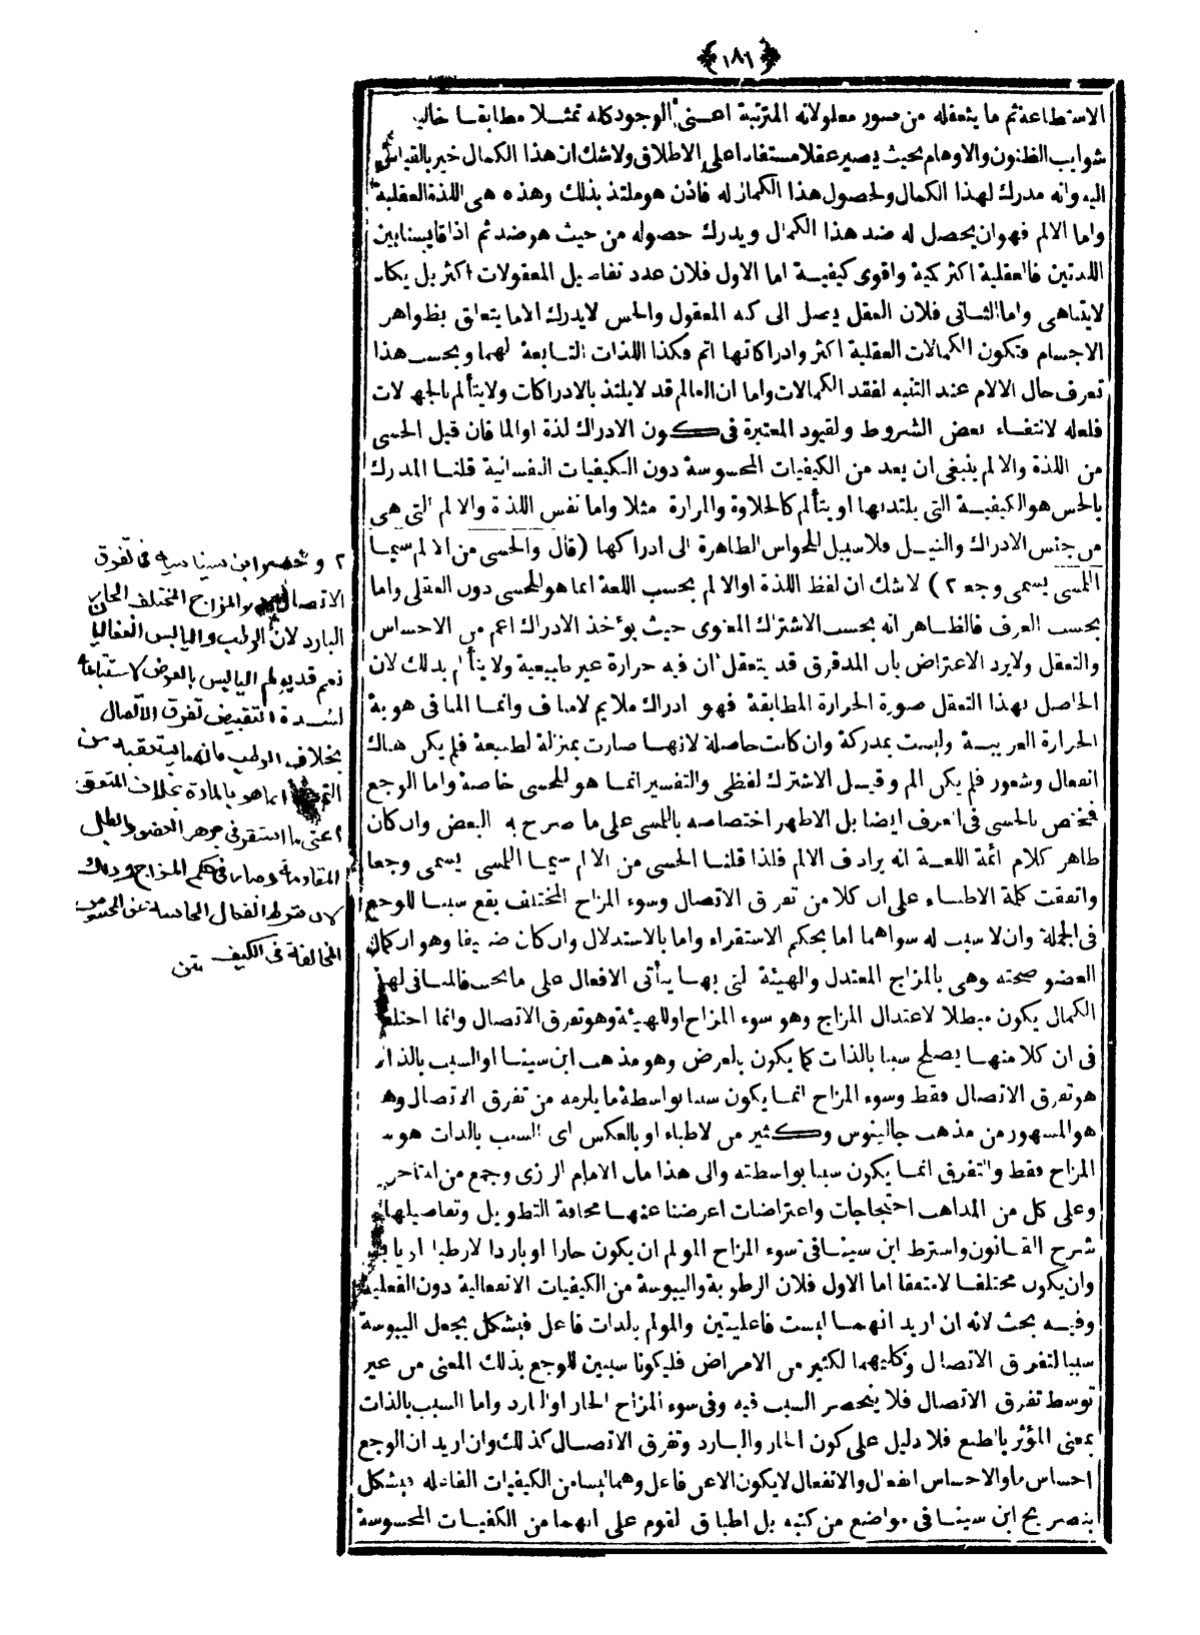 ﴿١٨٦﴾
الاستطاعة ثم ما يتعقله من صور معلولاته المترتبة اعنى الوجود كله تمثلا مطابقا خاليا
شوايب الظنون والاوهام بحيث يصير عقلا مستفادا على الاطلاق ولاشك ان هذا الكمال خير بالقياس
اليه وانه مدرك لهذا الكمال ولحصول هذا الكمال له فاذن هو ملتذ بذلك وهذه هى اللذة العقلية
واما الالم فهو ان يحصل له ضد هذا الكمال ويدرك حصوله من حيث هو ضد ثم اذا قايسنا بين
اللذتين فالعقلية اكثر كمية واقوى كيفية اما الاول فلان عدد تفاصيل المعقولات اكثر بل يكاد
لايتناهى واما الثانى فلان العقل يصل الى كنه المعقول والحس لايدرك الا ما يتعلق بظواهر
الاجسام فتكون الكمالات العقلية اكثر وادراكاتها اتم فكذا اللذات التابعة لهما وبحسب هذا
تعرف حال الالام عند التنبه لفقد الكمالات واما ان العالم قد لايلتذ بالادراكات ولايتألم بالجهالات
فلعله لانتفاء بعض الشروط والقيود المعتبرة فى كون الادراك لذة او الما فان قيل الحسى
من اللذة والالم ينبغى ان يعد من الكيفيات المحسوسة دون الكيفيات النفسانية قلنا المدرك
بالحس هو الكيفية التى يلتذبها او يتألم كالحلاوة والمرارة مثلا واما نفس اللذة والالم التى هى
من جنس الادراك والنيل فلا سبيل للحواس الظاهرة الى ادراكها (قال والحسى من الالم سيما
اللمسى يسمى وجعا ٢) لاشك ان لفظ اللذة او الالم بحسب اللغة انما هو للحسى دون العقلى واما
بحسب العرف فالظاهر انه بحسب الاشتراك المعنوى حيث يؤخذ الادراك اعم من الاحساس
والتعقل ولايرد الاعتراض بان المدقوق قد يتعقل ان فيه حرارة غير طبيعية ولا يتألم بذلك لان
الحاصل بهذا التعقل صورة الحرارة المطابقة فهو ادراك ملايم لامناف وانما المنافى هوية
الحرارة الغريبة وليست بمدركة وان كانت حاصلة لانها صارت بمنزلة الطبيعة فلم يكن هناك
انفعال وشعور فلم يكن الم وقيل الاشتراك لفظى والتفسير انما هو للحسى خاصة واما الوجع
فمختص بالحسى فى العرف ايضا بل الاظهر اختصاصه باللمسى على ما صرح به البعض وان كان
ظاهر كلام ائمة اللغة انه يرادف الالم فلذا قلنا الحسى من الالم سيما اللمسى يسمى وجعا
واتفقت كلمة الاطباء على ان كلا من تفرق الاتصال وسوء المزاج المختلف يقع سببا للوجع
فى الجملة وان لاسبب له سواهما اما بحكم الاستقراء واما بالاستدلال وان كان ضعيفا وهو ان كمال
العضو صحته وهى بالمزاج المعتدل والهيئة التى بها يتأتى الافعال على ما يجب فالمنافى لهذا
الكمال يكون مبطلا لاعتدال المزاج وهو سوء المزاج او للهيئة وهو تفرق الاتصال وانما اختلفوا
فى ان كلا منهما يصلح سببا بالذات كما يكون بالعرض وهو مذهب ابن سينا او السبب بالذات
هو تفرق الاتصال فقط وسوء المزاج انما يكون سببا بواسطة ما يلزمه من تفرق الاتصال وهذا
هو المشهور من مذهب جالينوس وكثير من الاطباء او بالعكس اى السبب بالذات هو سوء
المزاج فقط والتفرق انما يكون سببا بواسطته والى هذا مال الامام الرازى وجمع من المتأخرين
وعلى كل من المذاهب احتجاجات واعتراضات اعرضنا عنها مخافة التطويل وتفاصيلها
شرح القانون واشترط ابن سينا فى سوء المزاج المولم ان يكون حارا او باردا لارطبا او يابسا
وان يكون مختلفا لامتفقا اما الاول فلان الرطوبة واليبوسة من الكيفيات الانفعالية دون الفعلية
وفيه بحث لانه ان اريد انهما ليست فاعليتين والمولم بالذات فاعل فيشكل بجعل اليبوسة
سببا لتفرق الاتصال وكليهما لكثير من الامراض فليكونا سببين للوجع بذلك المعنى من غير
توسط تفرق الاتصال فلا ينحصر السبب فيه وفى سوء المزاج الحار او البارد واما السبب بالذات
بمعنى المؤثر بالطبع فلا دليل على كون الحار والبارد وتفرق الاتصال كذلك وان اريد ان الوجع
احساس ما والاحساس انفعال والانفعال لايكون الا عن فاعل وهما ليسا من الكيفيات الفاعله فيشكل
بتصريح ابن سينا فى مواضع من كتبه بل اطباق القوم على انهما من الكفيات المحسوسة
٢ وحصر ابن سينا سببه فى تفرق
الاتصال والمزاج المختلف الحار
البارد لان الرطب واليابس انفعاليان
نعم قد يولم اليابس بالعرض لاستتباعه
لشدة التقبيض تفرق الاتصال
بخلاف الرطب فانه ما يستعقبه من
انما هو بالمادة بخلاف المتفق
اعنى ما استقر فى جوهر العضو وابطل
المقاومة وصار فى حكم المزاج وذلك
لان شرط انفعال الحاسة عن المحسوس
المخالفة فى الكيف متن